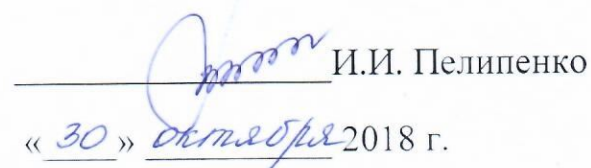 И.И. Пелипенко
« 30 » октября 2018 г.